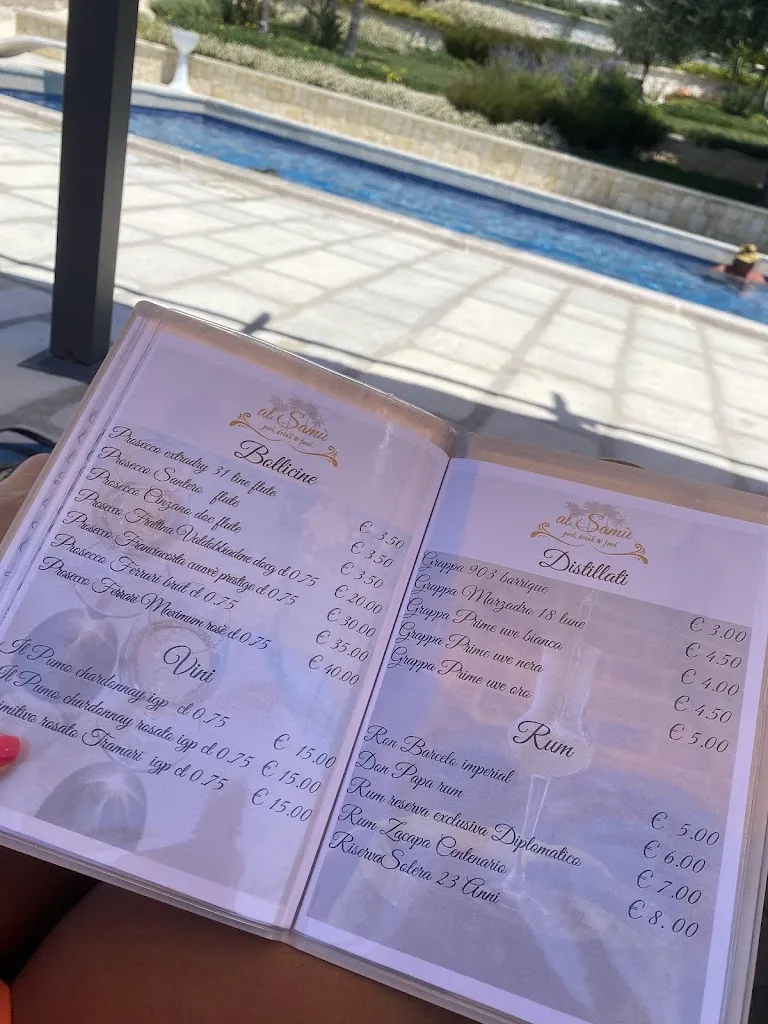 al Samù
pool, drink & food
Bollicine
Prosecco extradry 31 line flute € 3.50
Prosecco Santero flute € 3.50
Prosecco Cinzano doc flute € 3.50
Prosecco Frattina Valdobbiadene docg cl 0.75 € 20.00
Prosecco Franciacorta cuuvè prestige cl 0.75 € 30.00
Prosecco Ferrari brut cl 0.75 € 35.00
Prosecco Ferrari Maximum rosè cl 0.75 € 40.00
Vini
Il Pumo chardonnay igp cl 0.75 € 15.00
Il Pumo chardonnay rosato igp cl 0.75 € 15.00
rosato Tramari igp cl 0.75 € 15.00
al Samù
pool, drink & food
Distillati
Grappa 903 barrique € 3.00
Grappa Marzadro 18 lune € 4.50
Grappa Prime uve bianca € 4.00
Grappa Prime uve nera € 4.50
Grappa Prime uve oro € 5.00
Rum
Ron Barcelo imperial € 5.00
Don Papa rum € 6.00
Rum reserva exclusiva Diplomatico € 7.00
Rum Zacapa Centenario € 8.00
RiservaSolera 23 Anni